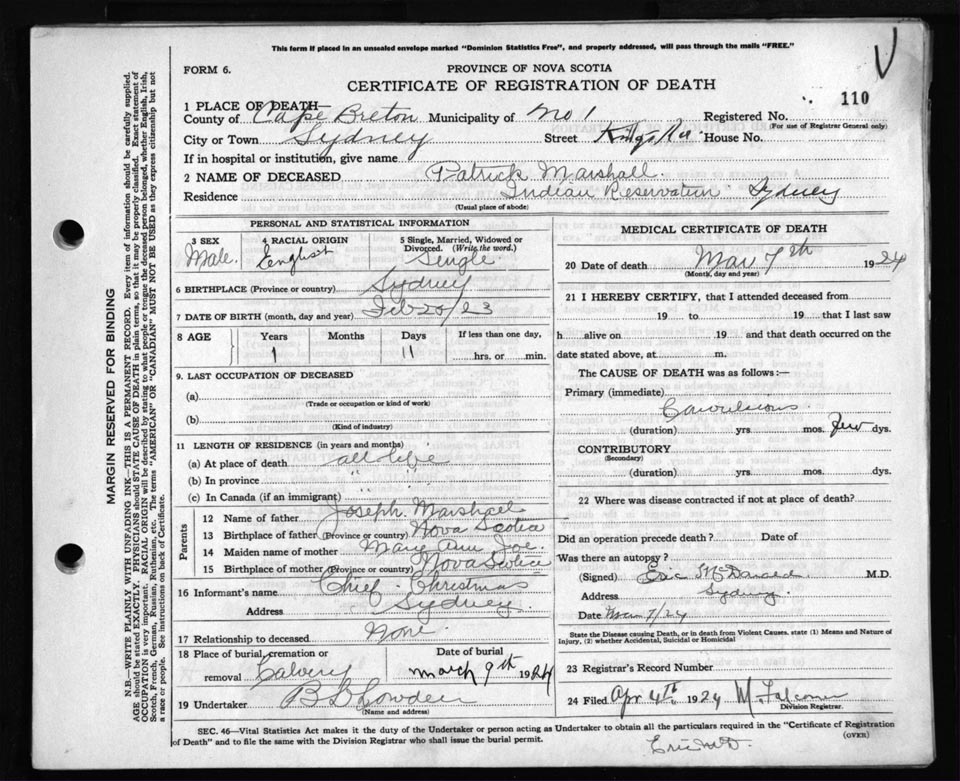 This form if placed in an unsealed envelope marked "Dominion Statistics Free", and properly addressed, will pass through the mails "FREE."
FORM 6.
PROVINCE OF NOVA SCOTIA
CERTIFICATE OF REGISTRATION OF DEATH
110
1 PLACE OF DEATH—
County of Cape Breton Municipality of No 1 Registered No.
(For use of Registrar General only)
City or Town Sydney Street Kings Rd House No.
If in hospital or institution, give name
2 NAME OF DECEASED Patrick Marshall
Residence Indian Reservation Sydney
(Usual place of abode)
PERSONAL AND STATISTICAL INFORMATION
3 SEX Male. 4 RACIAL ORIGIN English 5 Single, Married, Widowed or Divorced. (Write the word.) Single
6 BIRTHPLACE (Province or country) Sydney
7 DATE OF BIRTH (month, day and year) Feb 20/23
8 AGE Years Months Days If less than one day,
1 11 hrs. or min.
9. LAST OCCUPATION OF DECEASED
(a)
(Trade or occupation or kind of work)
(b)
(Kind of industry)
11 LENGTH OF RESIDENCE (in years and months)
(a) At place of death all life
(b) In province " "
(c) In Canada (if an immigrant) " "
Parents
12 Name of father Joseph Marshall
13 Birthplace of father (Province or country) Nova Scotia
14 Maiden name of mother Mary Ann Joe.
15 Birthplace of mother (Province or country) Nova Scotia
16 Informant's name Chief Christmas
Address Sydney
17 Relationship to deceased None.
18 Place of burial, cremation or removal Calvery Date of burial March 9th 1924
19 Undertaker
(Name and address)
MEDICAL CERTIFICATE OF DEATH
20 Date of death Mar 7th 1924
(Month, day and year)
21 I HEREBY CERTIFY, that I attended deceased from
19 to 19 that I last saw
h alive on 19 and that death occurred on the
date stated above, at m.
The CAUSE OF DEATH was as follows:—
Primary (immediate)
Convulsions
(duration) yrs. mos. few dys.
CONTRIBUTORY
(Secondary)
(duration) yrs. mos. dys.
22 Where was disease contracted if not at place of death?
Did an operation precede death? Date of
Was there an autopsy?
(Signed) Eric McDonald M.D.
Address Sydney
Date Mar 7/24
State the Disease causing Death, or in death from Violent Causes, state (1) Means and Nature of
Injury, (2) whether Accidental, Suicidal or Homicidal
23 Registrar's Record Number
24 Filed Apr 4th 1924 M Falconer
Division Registrar.
SEC. 46—Vital Statistics Act makes it the duty of the Undertaker or person acting as Undertaker to obtain all the particulars required in the "Certificate of Registration
of Death" and to file the same with the Division Registrar who shall issue the burial permit.
(OVER)
Eric McD
MARGIN RESERVED FOR BINDING
N.B.—WRITE PLAINLY WITH UNFADING INK—THIS IS A PERMANENT RECORD. Every item of information should be carefully supplied.
AGE should be stated EXACTLY. PHYSICIANS should STATE CAUSE OF DEATH in plain terms, so that it may be properly classified. Exact statement of
OCCUPATION is very important. RACIAL ORIGIN will be described by stating to what people or tongue the deceased person belonged, whether English, Irish,
Scotch, French, German, Russian, Ruthenian, etc. The terms "AMERICAN" OR "CANADIAN" MUST NOT BE USED as they express citizenship but not
a race or people. See instructions on back of Certificate.